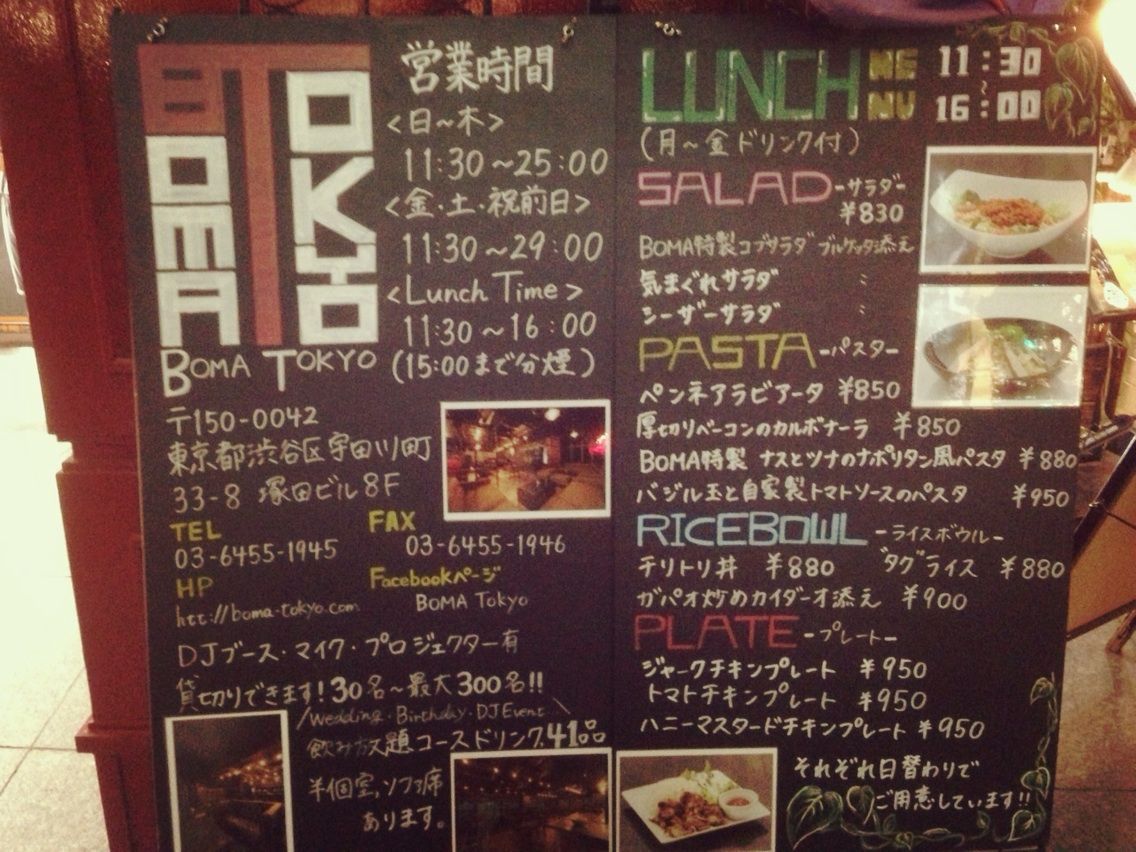 BOMA
TOKYO
BOMA TOKYO
営業時間
<日~木>
11:30~25:00
<金・土・祝前日>
11:30~29:00
<Lunch Time>
11:30~16:00
(15:00まで分煙)
〒150-0042
東京都渋谷区宇田川町
33-8 塚田ビル8F
TEL
03-6455-1945
FAX
03-6455-1946
HP
htt://boma-tokyo.com
Facebookページ
BOMA Tokyo
DJブース・マイク・プロジェクター有
貸切りできます!30名~最大300名!!
/Wedding・Birthday・DJ Event\
飲み放題コースドリンク41品
半個室,ソファ席
あります。
LUNCH MENU 11:30~16:00
(月~金ドリンク付)
SALAD -サラダ-
¥830
BOMA特製コブサラダ ブルケッタ添え
気まぐれサラダ 〃
シーザーサラダ 〃
PASTA -パスタ-
ペンネアラビアータ ¥850
厚切りベーコンのカルボナーラ ¥850
BOMA特製 ナスとツナのナポリタン風パスタ ¥880
バジル玉と自家製トマトソースのパスタ ¥950
RICEBOWL -ライスボウル-
チリトリ丼 ¥880 タグライス ¥880
ガパオ炒めカイダーオ添え ¥900
PLATE -プレート-
ジャークチキンプレート ¥950
トマトチキンプレート ¥950
ハニーマスタードチキンプレート ¥950
それぞれ日替わりで
ご用意しています!!